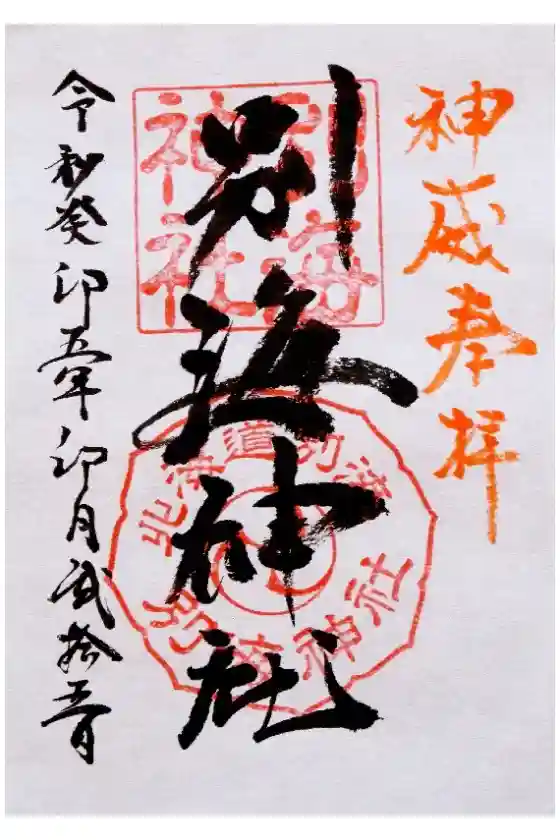 神威奉拝
別海神社
別海
神社
北海道別海
別海神社
令和癸卯五年卯月弐拾五日